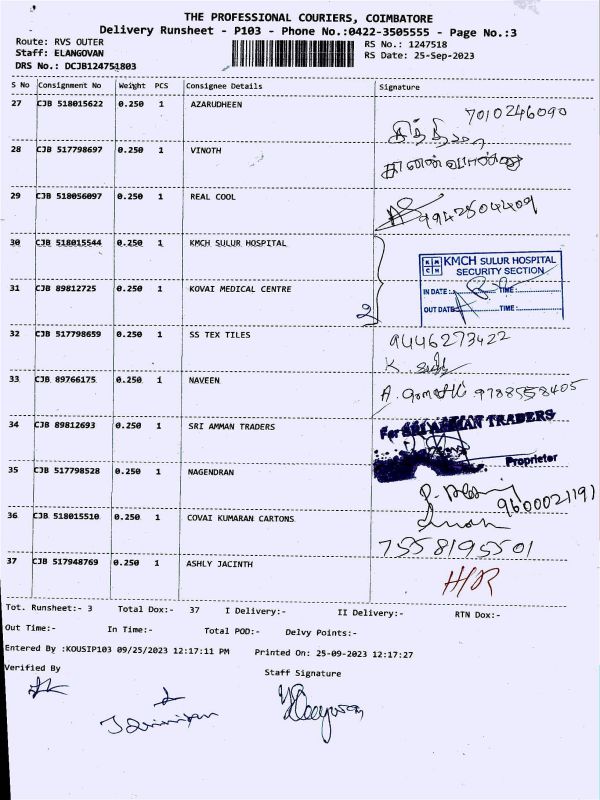 THE PROFESSIONAL COURIERS, COIMBATORE
Delivery Runsheet - P103 - Phone No.:0422-3505555 - Page No.:3
Route: RVS OUTER RS No.: 1247518
Staff: ELANGOVAN RS Date: 25-Sep-2023
DRS No.: DCJB124751803
S No Consignment No Weight PCS Consignee Details Signature
27 CJB 518015622 0.250 1 AZARUDHEEN 7010246090
28 CJB 517798697 0.250 1 VINOTH
29 CJB 518056097 0.250 1 REAL COOL 9942504409
30 CJB 518015544 0.250 1 KMCH SULUR HOSPITAL
KMCH SULUR HOSPITAL
SECURITY SECTION
IN DATE: TIME:
OUT DATE TIME:
31 CJB 89812725 0.250 1 KOVAI MEDICAL CENTRE 2
32 CJB 517798659 0.250 1 SS TEX TILES 9446273422
33 CJB 89766175 0.250 1 NAVEEN A. Gomathi 9788558405
34 CJB 89812693 0.250 1 SRI AMMAN TRADERS
For SRI AMMAN TRADERS
Proprietor
35 CJB 517798528 0.250 1 NAGENDRAN 9600021191
36 CJB 518015510 0.250 1 COVAI KUMARAN CARTONS 7558195501
37 CJB 517948769 0.250 1 ASHLY JACINTH H/R
Tot. Runsheet:- 3 Total Dox:- 37 I Delivery:- II Delivery:- RTN Dox:-
Out Time:- In Time:- Total POD:- Delvy Points:-
Entered By :KOUSIP103 09/25/2023 12:17:11 PM Printed On: 25-09-2023 12:17:27
Verified By Staff Signature